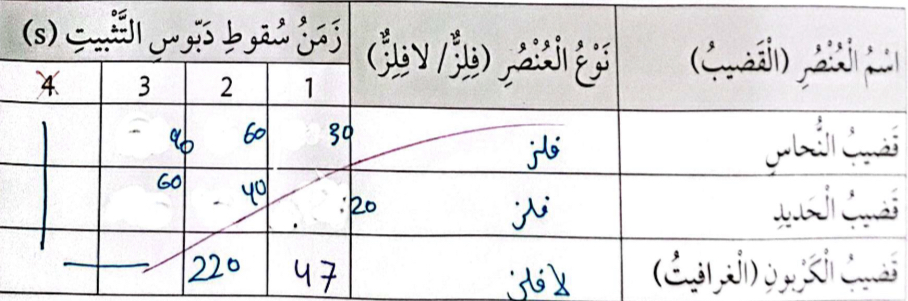 اسْمُ الْعُنْصُرِ (الْقَضيبُ) نَوْعُ الْعُنْصُرِ (فِلِزٌّ/ لافِلِزٌّ) زَمَنُ سُقوطِ دَبّوسِ التَّثْبيتِ (s)
1 2 3 4
قَضيبُ النُّحاسِ فلز 30 60 90
قَضيبُ الْحَديدِ فلز 20 40 60
قَضيبُ الْكَرْبونِ (الْغرافيتُ) لا فلز 47 220